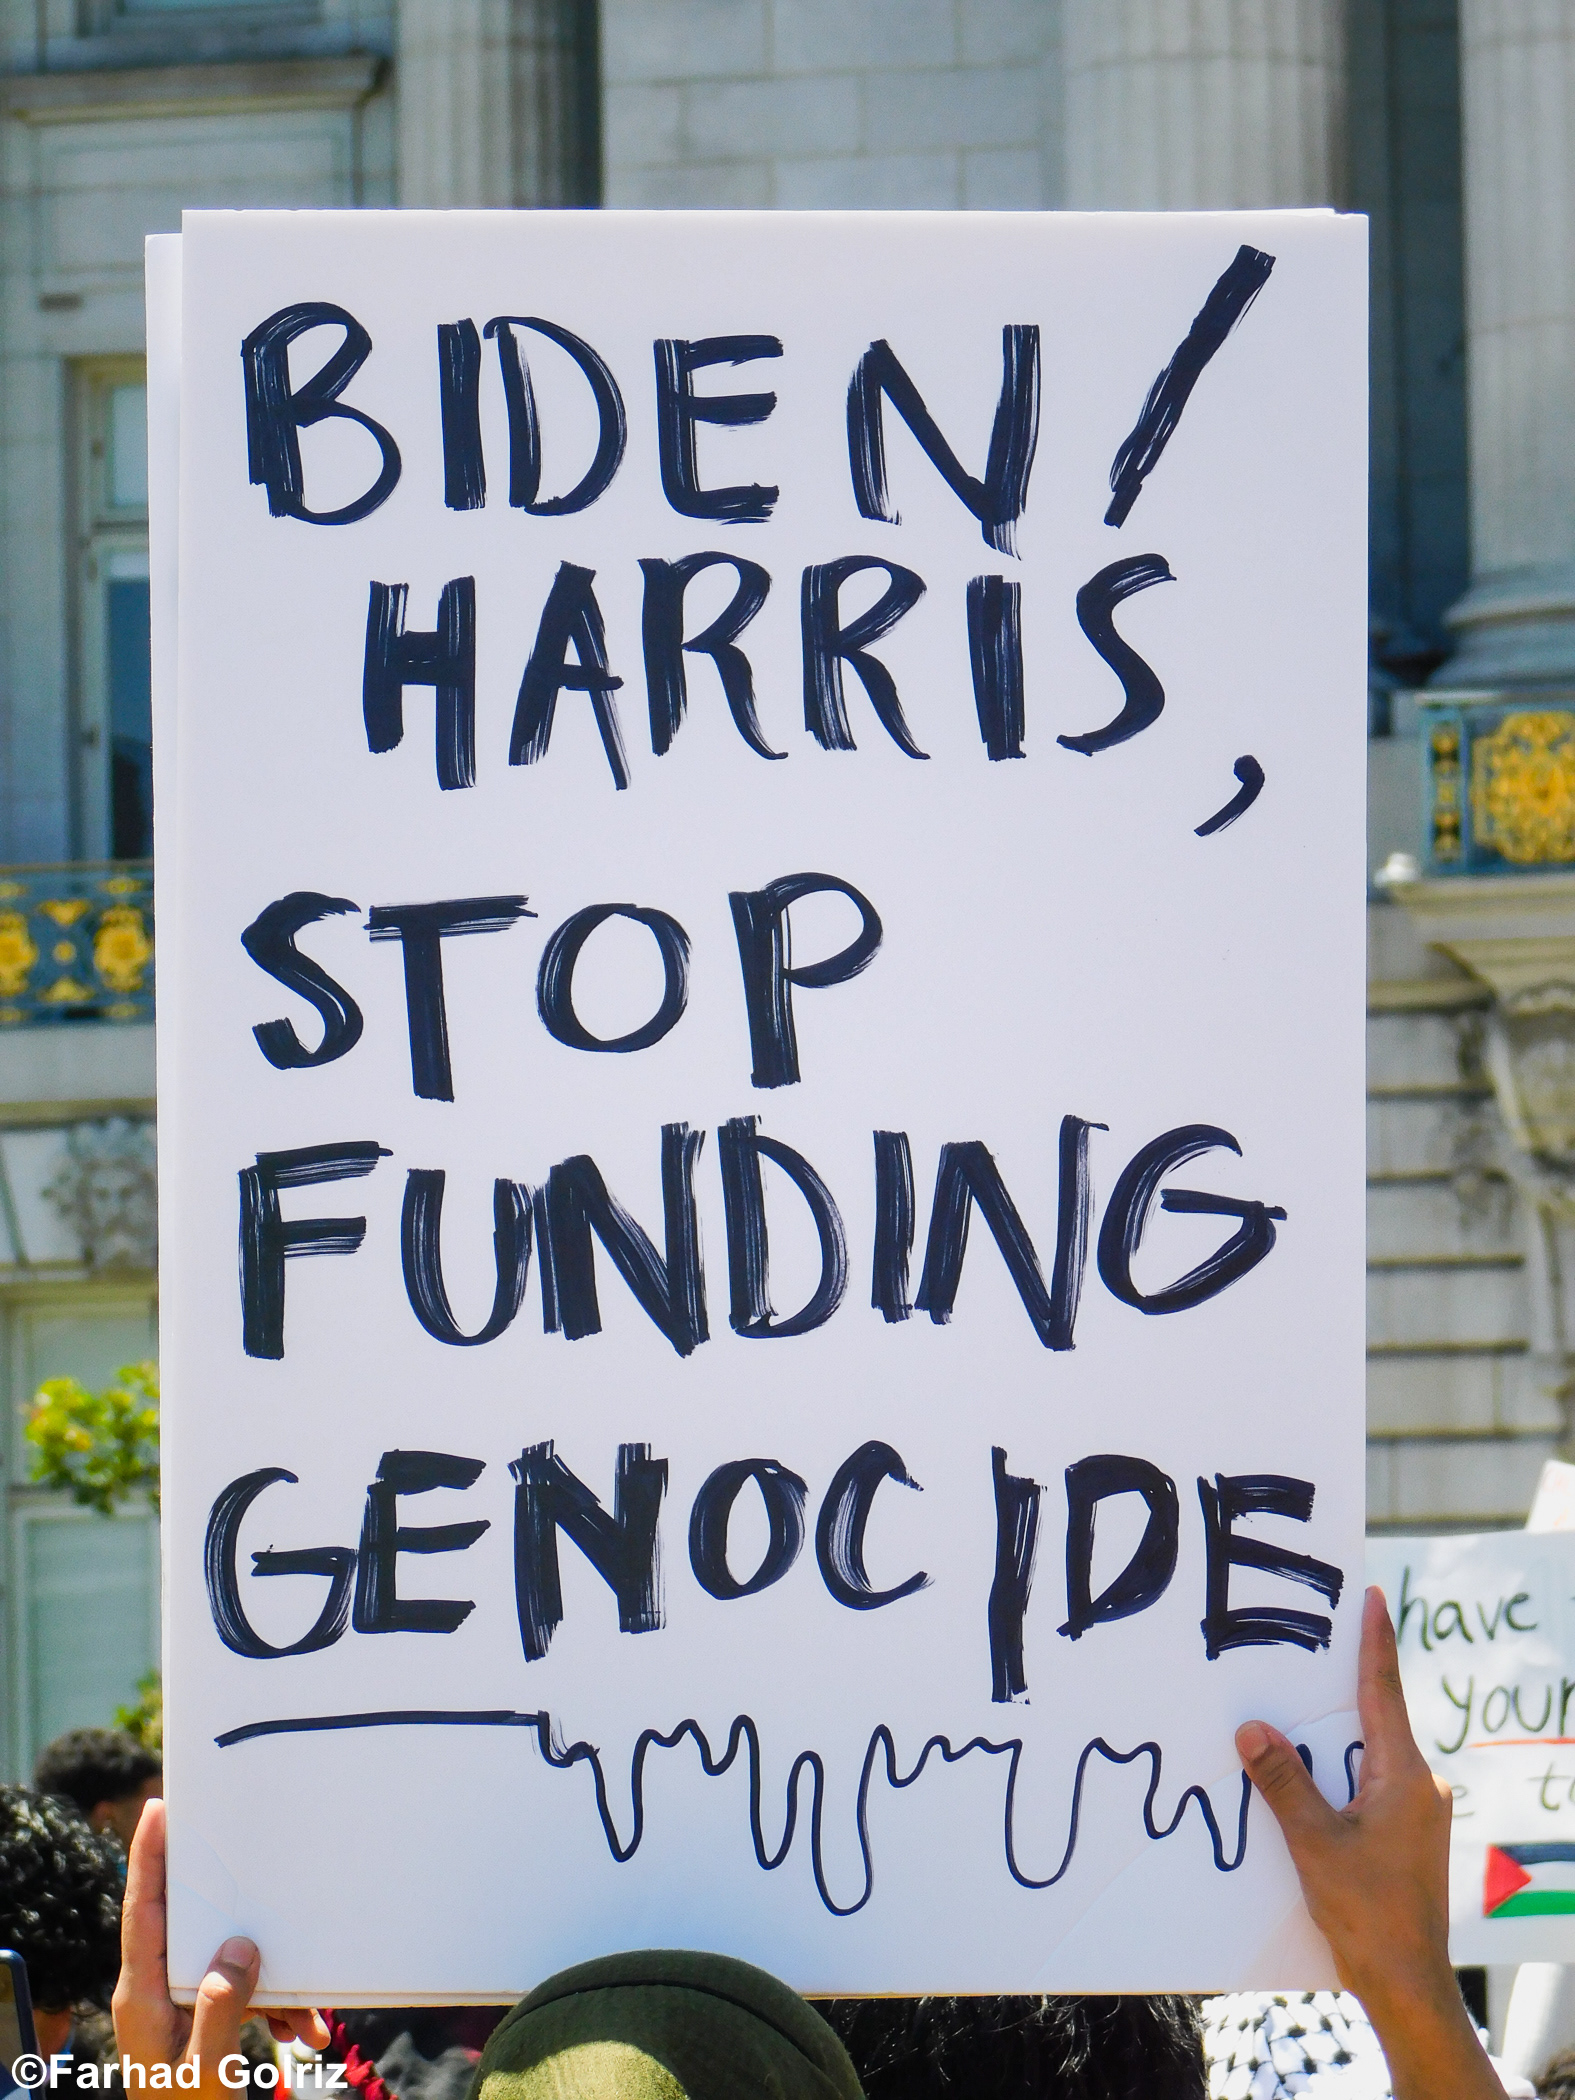 BIDEN/
HARRIS,
STOP
FUNDING
GENOCIDE
have
your
to
©Farhad Golriz